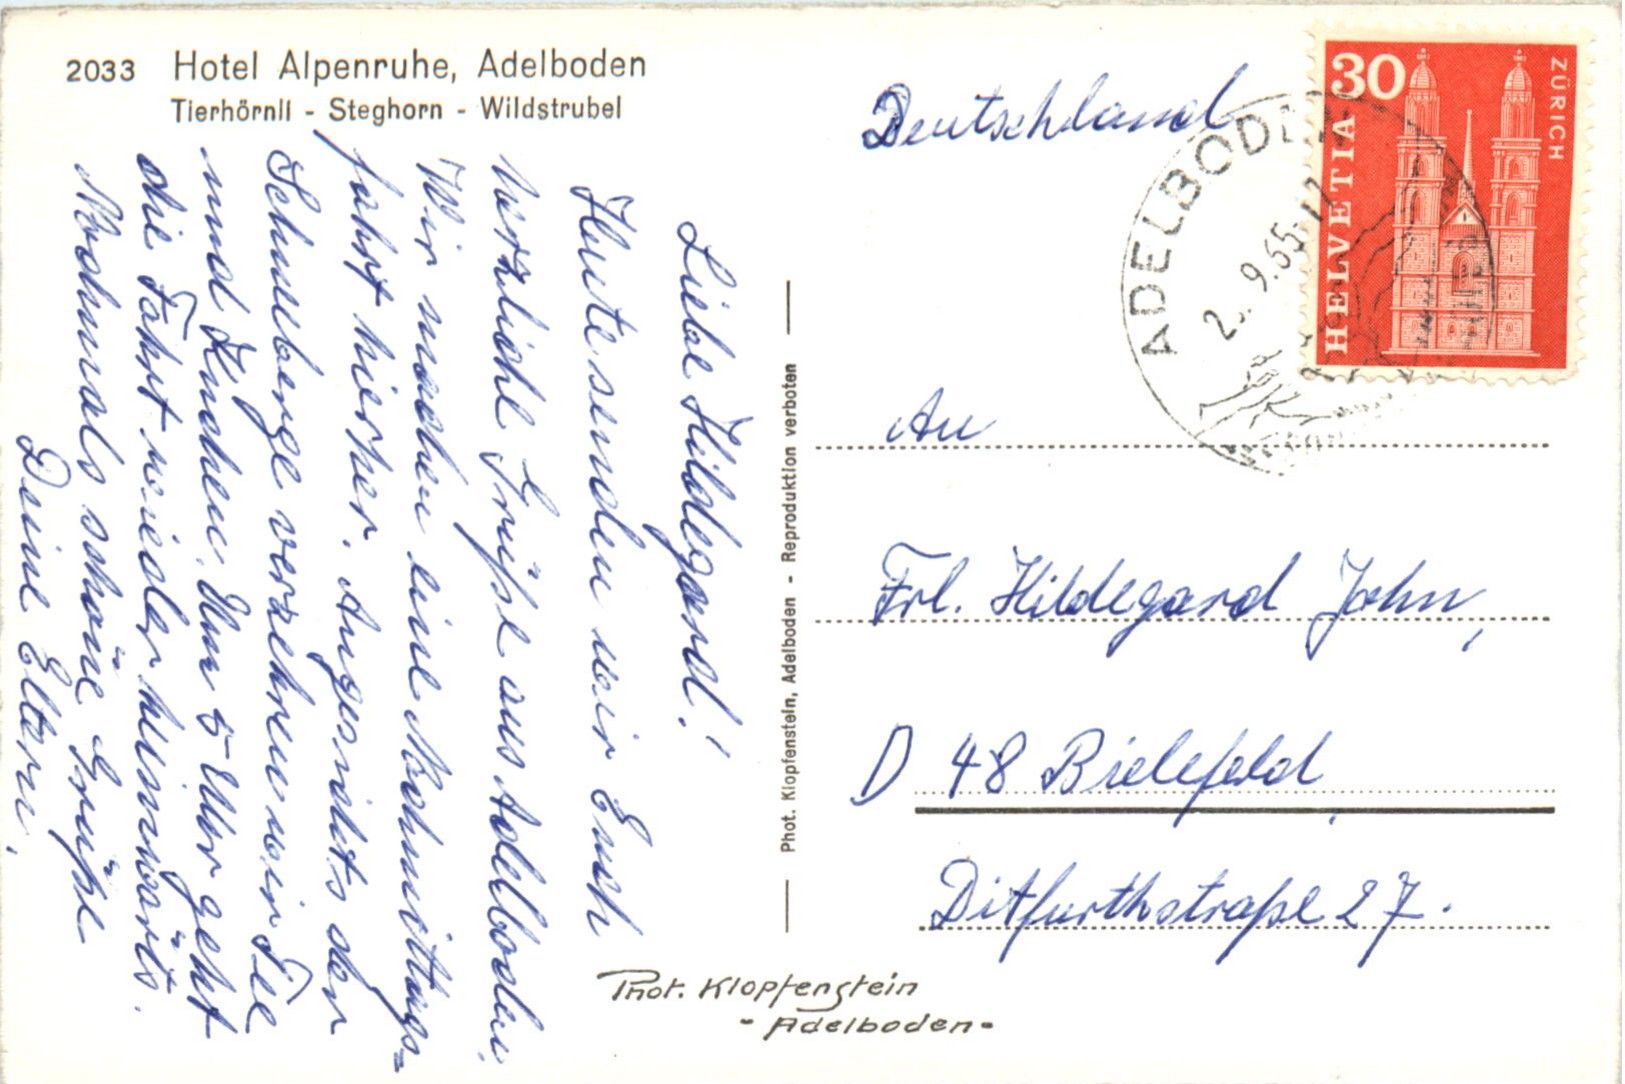 2033 Hotel Alpenruhe, Adelboden
Tierhörnli - Steghorn - Wildstrubel
Liebe Hildegard!
Heute senden wir Euch
herzliche Grüße aus Adelboden.
Wir machen eine Nachmittags-
fahrt hierher. Angesichts der
Schneeberge verzehren wir Tee
und Kuchen. Um 5 Uhr geht
die Fahrt wieder heimwärts.
Nochmals schöne Grüße
Deine Eltern.
Phot. Klopfenstein, Adelboden - Reproduktion verboten
Phot. Klopfenstein
- Adelboden -
Deutschland
ADELBODEN
9.65-17
30
ZÜRICH
HELVETIA
An
Frl. Hildegard John,
D 48 Bielefeld
Ditfurthstraße 27.